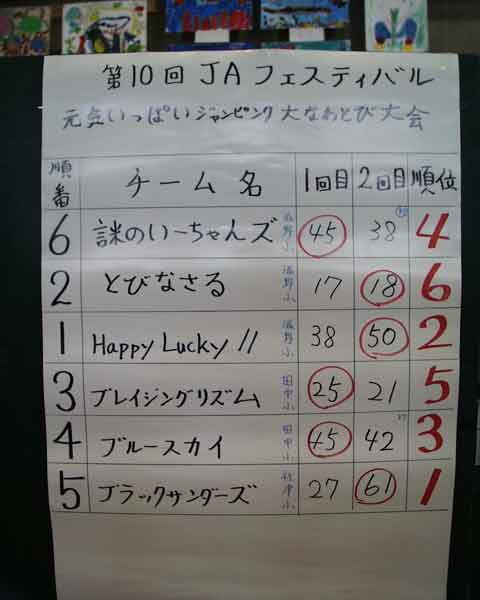 第10回 JAフェスティバル
元気いっぱいジャンピング大なわとび大会
順番 チーム名 1回目 2回目 順位
6 謎のいーちゃんズ 滋野小 45 38 4
2 とびなさる 滋野小 17 18 6
1 Happy Lucky!! 滋野小 38 50 2
3 ブレイジングリズム 田中小 25 21 5
4 ブルースカイ 田中小 45 42 3
5 ブラックサンダーズ 祢津小 27 61 1